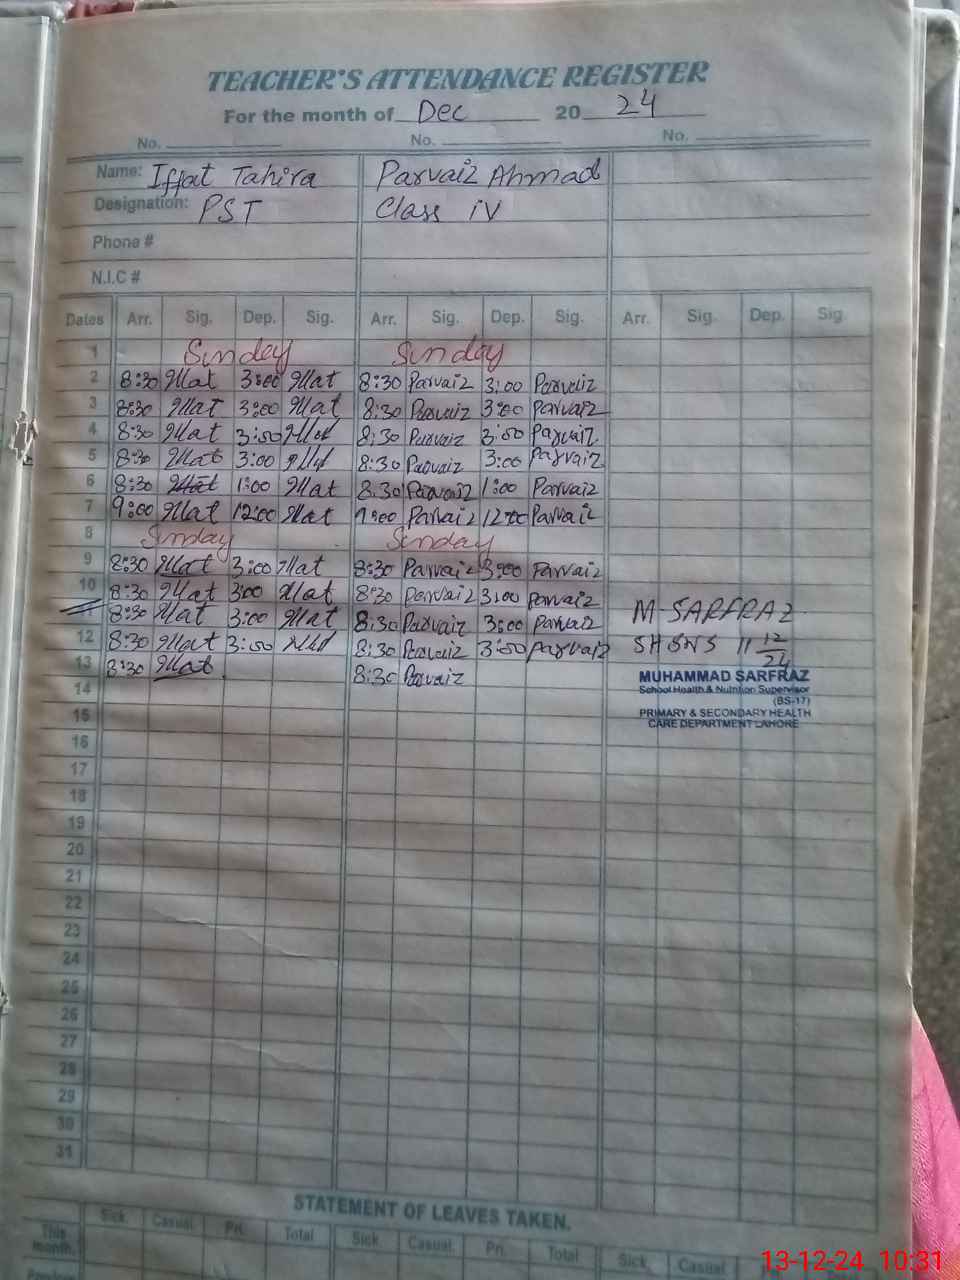 TEACHER'S ATTENDANCE REGISTER
For the month of Dec 20 24
No. No. No.
Name: Iffat Tahira Parvaiz Ahmad
Designation: PST Class iV
Phone #
N.I.C #
Dates Arr. Sig. Dep. Sig. Arr. Sig. Dep. Sig. Arr. Sig. Dep. Sig
1 Sunday Sunday
2 8:30 Iffat 3:00 Iffat 8:30 Parvaiz 3:00 Parvaiz
3 8:30 Iffat 3:00 Iffat 8:30 Parvaiz 3:00 Parvaiz
4 8:30 Iffat 3:00 Iffat 8:30 Parvaiz 3:00 Parvaiz
5 8:30 Iffat 3:00 Iffat 8:30 Parvaiz 3:00 Parvaiz
6 8:30 Iffat 1:00 Iffat 8:30 Parvaiz 1:00 Parvaiz
7 9:00 Iffat 12:00 Iffat 9:00 Parvaiz 12:00 Parvaiz
8 Sunday Sunday
9 8:30 Iffat 3:00 Iffat 8:30 Parvaiz 3:00 Parvaiz
10 8:30 Iffat 3:00 Iffat 8:30 Parvaiz 3:00 Parvaiz
8:30 Iffat 3:00 Iffat 8:30 Parvaiz 3:00 Parvaiz M-SARFRAZ
12 8:30 Iffat 3:00 Iffat 8:30 Parvaiz 3:00 Parvaiz SH&NS 11 12/24
13 8:30 Iffat 8:30 Parvaiz MUHAMMAD SARFRAZ
14 School Health & Nutrition Supervisor
(BS-17)
15 PRIMARY & SECONDARY HEALTH
CARE DEPARTMENT LAHORE
16
17
18
19
20
21
22
23
24
25
26
27
28
29
30
31
STATEMENT OF LEAVES TAKEN.
This month. Sick. Casual. Pri. Total Sick. Casual. Pri. Total Sick. Casual
13-12-24 10:31